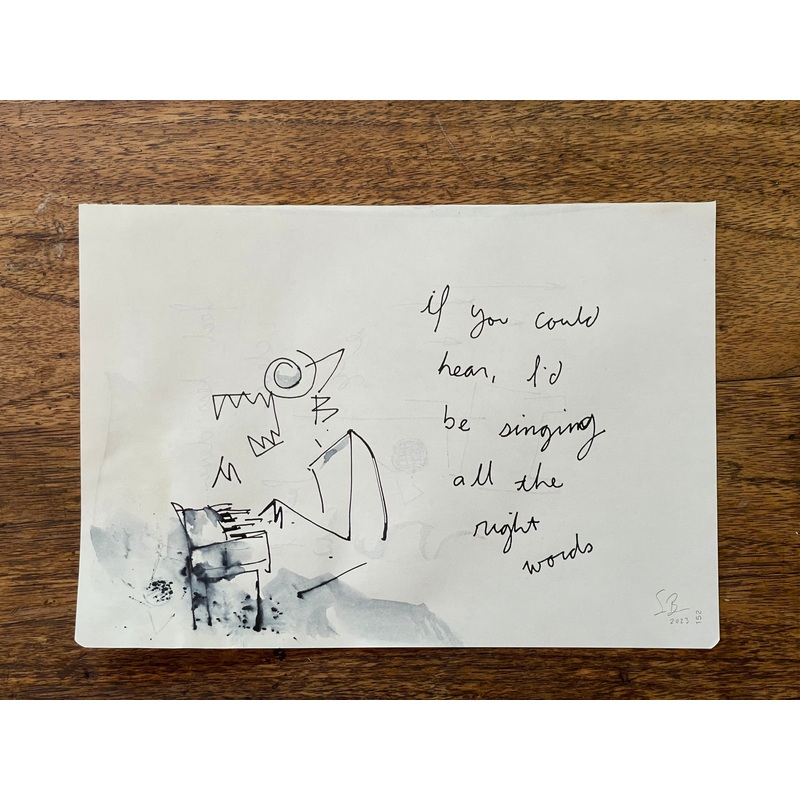 if you could
hear, I'd
be singing
all the
right
words
SB
2023
152